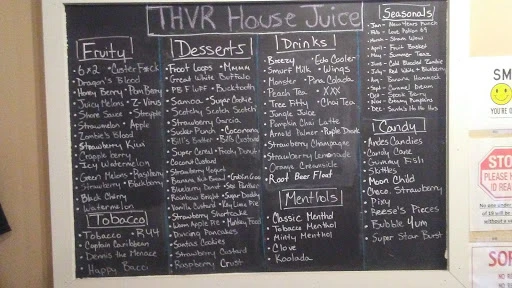 THVR House Juice
Fruity
• 6x2
• Dragon's Blood
• Honey Berry • Pom Berry
• Juicy Melons • Z-Virus
• Shore Sauce • Strapple
• Strawmelon • Apple
• Zombie's Blood
• Strawberry Kiwi
• Crapple Berry
• Icy Watermelon
• Green Melons • Raspberry
• Strawberry • Blackberry
• Black Cherry
• Watermelon
Tobacco
• Tobacco • RY44
• Captain Caribbean
• Dennis the Menace
• Happy Bacci
Desserts
• Froot Loops
• Great White Buffalo
• PB FLUFF • Bucktooth
• Samoa • Sugar Cookie
• Scotchy Scotch Scotch
• Strawberry Garcia
• Sucker Punch • Coconana
• Bill's Butter • Bill's Custard
• Super Cereal • Frosty Donut
• Coconut Custard
• Strawberry Yogurt
• Banana Nut Bread • Goblin Goo
• Blueberry Donut
• Rainbow Bright • Sugar Daddy
• Vanilla Custard • Key Lime Pie
• Strawberry Shortcake
• Warm Apple Pie • Monkey Food
• Dancing Pancakes
• Santas Cookies
• Strawberry Custard
• Raspberry Crust
Drinks
• Breezy • Edo Cooler
• Smurf Milk • Wings
• Monster • Pina Colada
• Peach Tea • XXX
• Tree Fitty • Chai Tea
• Jungle Juice
• Pumpkin Chai Latte
• Arnold Palmer • Purple Drank
• Strawberry Champagne
• Strawberry Lemonade
• Orange Creamsicle
• Root Beer Float
Menthols
• Classic Menthol
• Tobacco Menthol
• Minty Menthol
• Clove
• Koolada
Seasonals
• Jan - New Years Punch
• Feb - Love Potion #9
• March - Sham Wow
• April - Fruit Basket
• May - Summer Teaze
• June - Cold Blooded Zombie
• July - Red White + Blueberry
• Aug - Banana Hammock
• Sept - Caramel Dream
• Oct - Spook Berry
• Nov - Boozy Pumpkins
• Dec - Santa's Ho Ho Hos
Candy
• Andes Candies
• Candy Cane
• Gummy Fish
• Skittles
• Moon Child
• Choco. Strawberry
• Pixy
• Reese's Pieces
• Bubble Yum
• Super Star Burst
SM
YOU'RE O
STOP
PLEASE H
ID REA
SOR